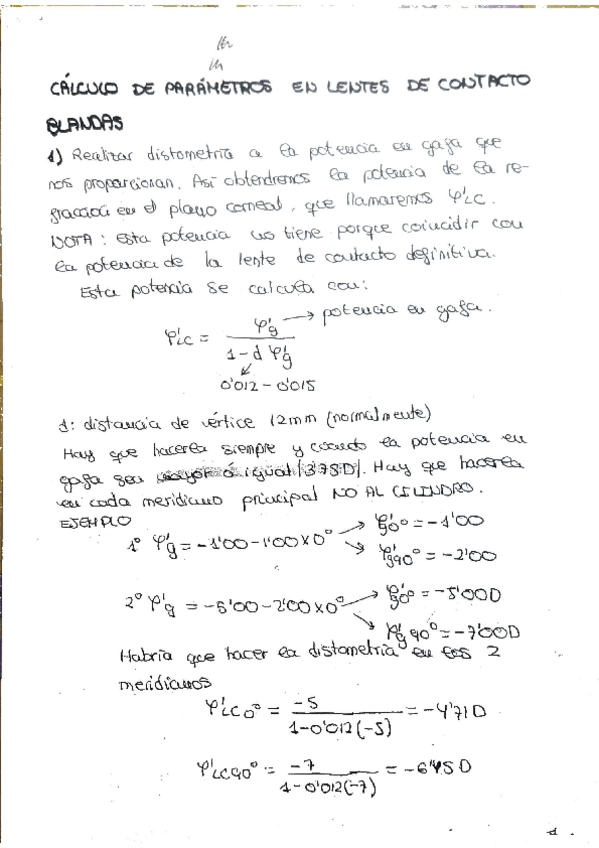 CÁLCULO DE PARÁMETROS EN LENTES DE CONTACTO
BLANDAS
1) Realizar distometría a la potencia en gafa que
nos proporcionan. Así obtendremos la potencia de la re-
fracción en el plano corneal, que llamaremos φ'LC.
NOTA: esta potencia no tiene porque coincidir con
la potencia de la lente de contacto definitiva.
Esta potencia se calcula con:
φ'LC = φ'g / (1-d φ'g) → potencia en gafa.
0'012-0'015
d: distancia de vértice 12mm (normalmente)
Hay que hacerla siempre y cuando la potencia en
gafa sea mayor ó igual |3'75D|. Hay que hacerla
en cada meridiano principal NO AL CILINDRO.
EJEMPLO
1º φ'g = -1'00-1'00x0° → φ'g0° = -1'00
→ φ'g90° = -2'00
2º φ'g = -5'00-2'00x0° → φ'g0° = -5'00D
→ φ'g90° = -7'00D
Habría que hacer la distometría en los 2
meridianos
φ'LC0° = -5 / (1-0'012(-5)) = -4'71D
φ'LC90° = -7 / (1-0'012(-7)) = -6'45D
1.